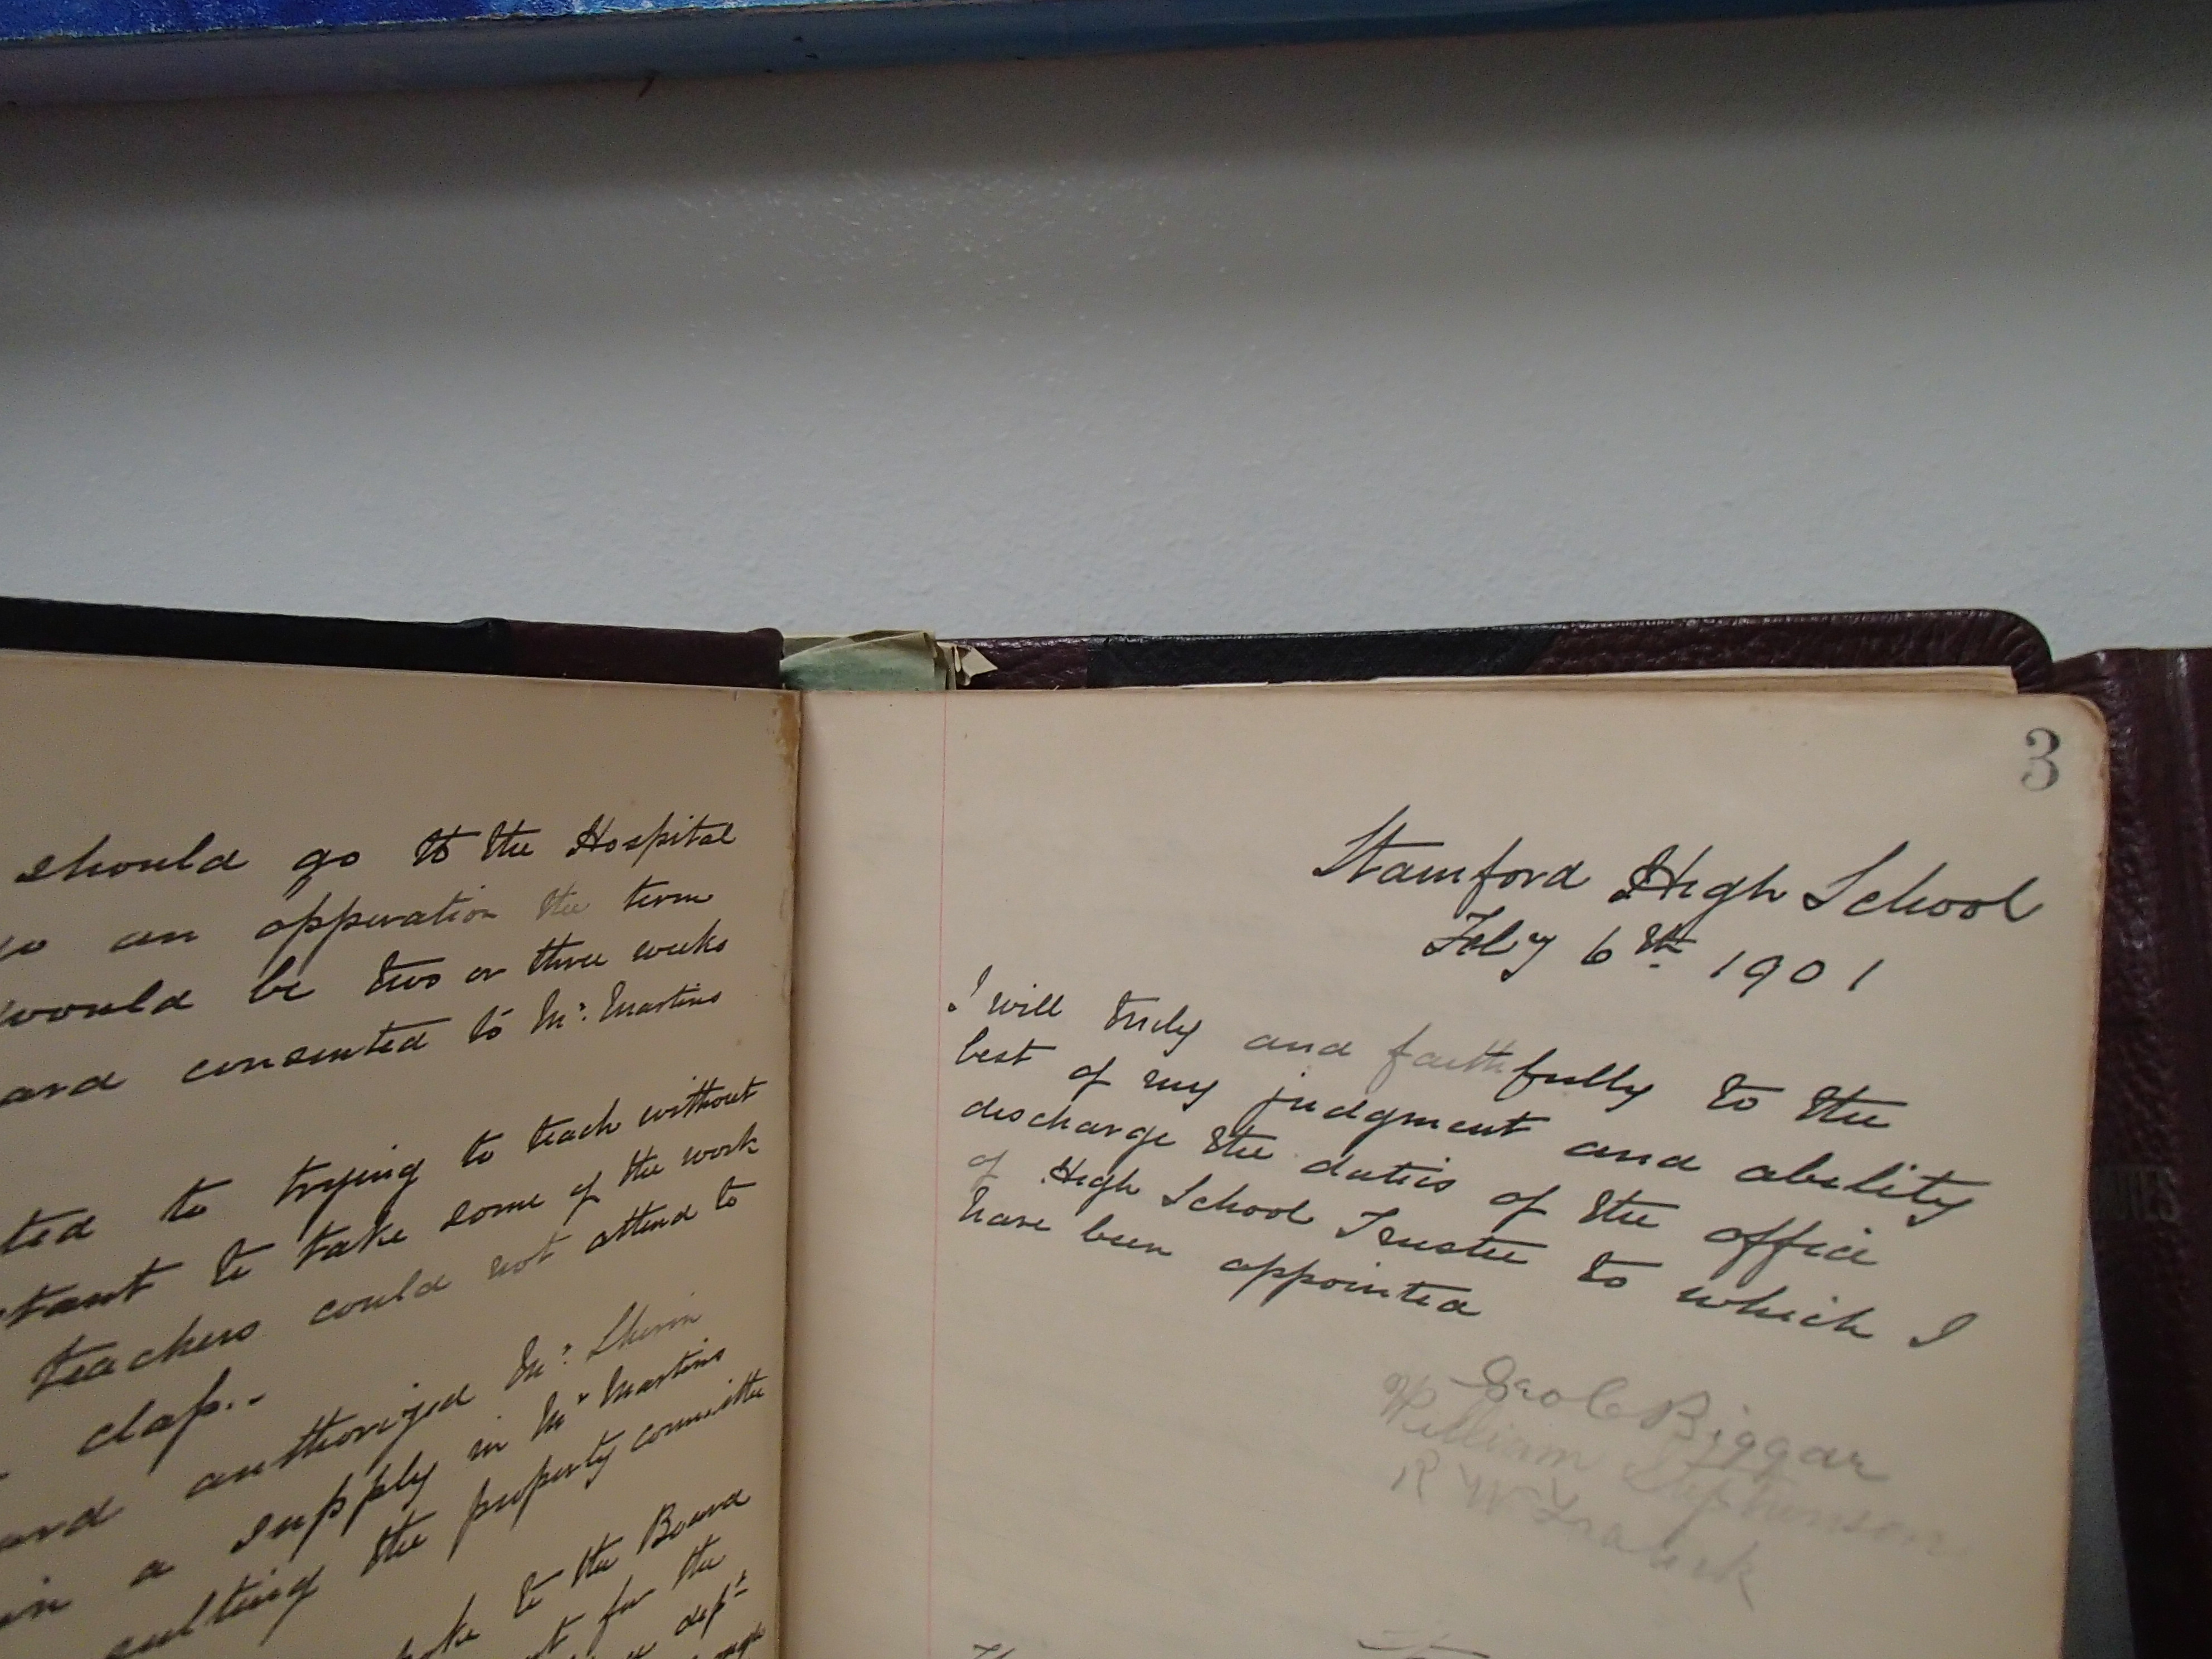 should go to the Hospital
an opperation the term
would be two or three weeks
and consented to Mr. Martins
to trying to teach without
to take some of the work
teachers could not attend to
clap..
authorized Mr. Sherin
in a supply in Mr Martins
the property committe
to the Board
for the
dept
3
Stamford High School
Feby 6th 1901
I will truly and faithfully to the
best of my judgment and ability
discharge the duties of the office
of High School Trustee to which I
have been appointed
Geo C Biggar
William Stephenson
R W